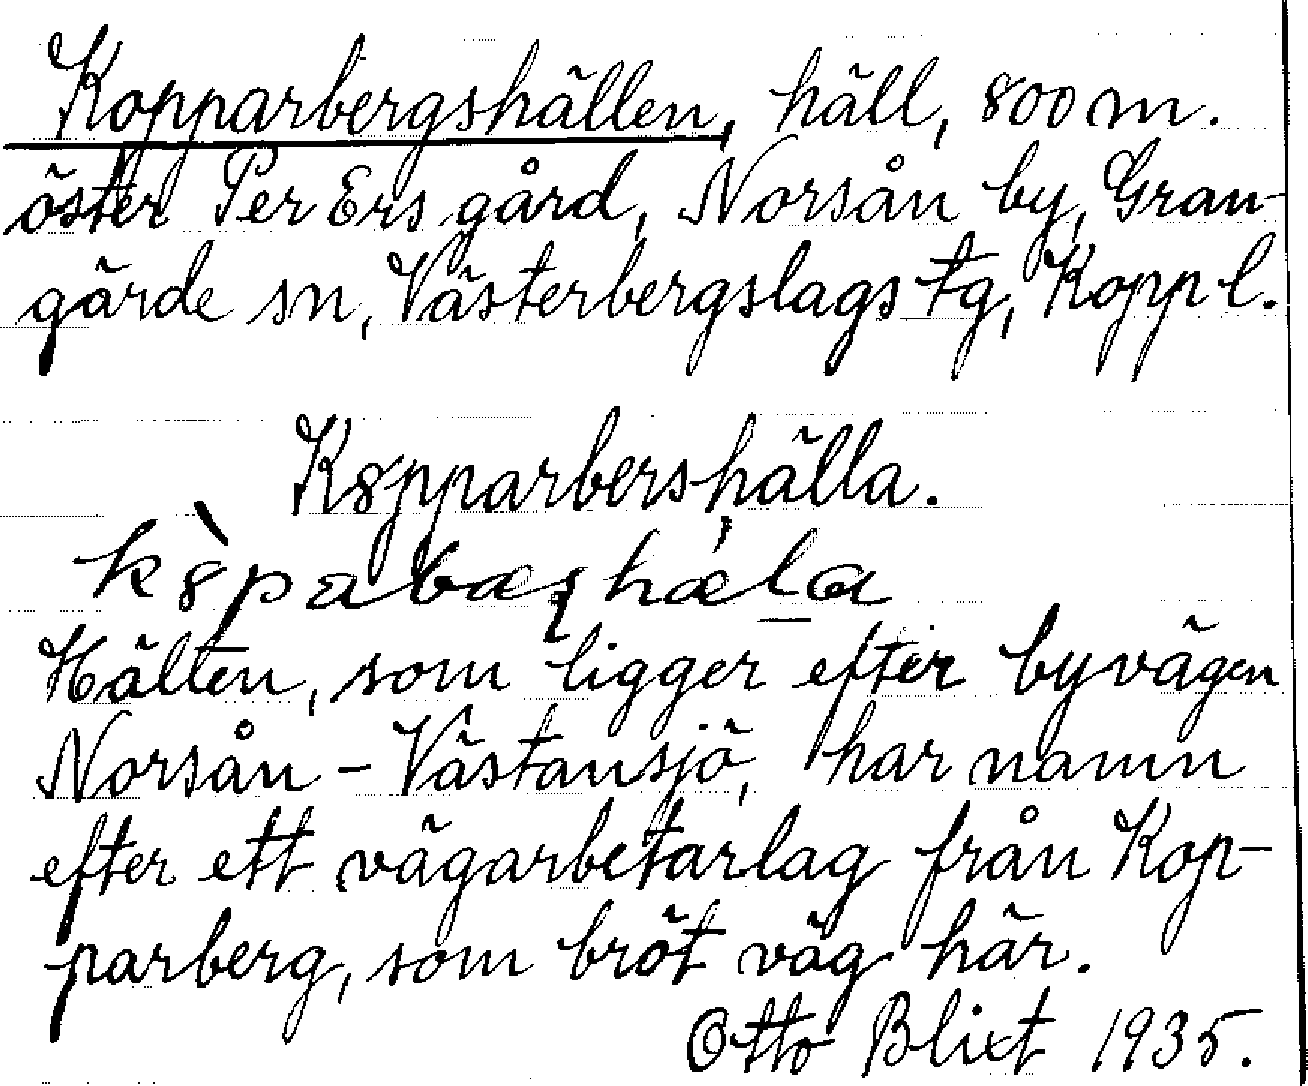 Kopparbergshällen, häll, 800 m.
öster Per Ers gård, Norsån by, Gran-
gärde sn, Västerbergslags tg, Kopp l.
Kopparbershälla.
Hällen, som ligger efter byvägen
Norsån - Västansjö, har namn
efter ett vägarbetarlag från Kop-
parberg, som bröt väg här.
Otto Blixt 1935.